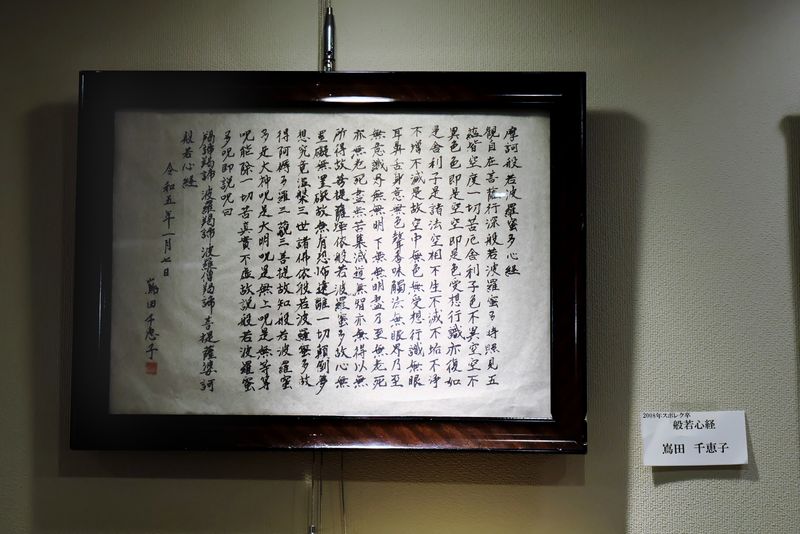 摩訶般若波羅蜜多心経
觀自在菩薩行深般若波羅蜜多時照見五
蘊皆空度一切苦厄舎利子色不異空空不
異色色即是空空即是色受想行識亦復如
是舎利子是諸法空相不生不滅不垢不浄
不増不減是故空中無色無受想行識無眼
耳鼻舌身意無色聲香味觸法無眼界乃至
無意識界無無明亦無無明盡乃至無老死
亦無老死盡無苦集滅道無智亦無得以無
所得故菩提薩埵依般若波羅蜜多故心無
罣礙無罣礙故無有恐怖遠離一切顛倒夢
想究竟涅槃三世諸佛依般若波羅蜜多故
得阿耨多羅三藐三菩提故知般若波羅蜜
多是大神呪是大明呪是無上呪是無等等
呪能除一切苦真實不虚故説般若波羅蜜
多呪即説呪曰
羯諦羯諦 波羅羯諦 波羅僧羯諦 菩提薩婆訶
般若心経
令和五年一月七日
嶌田千恵子
2008年スポレク卒
般若心経
嶌田 千恵子